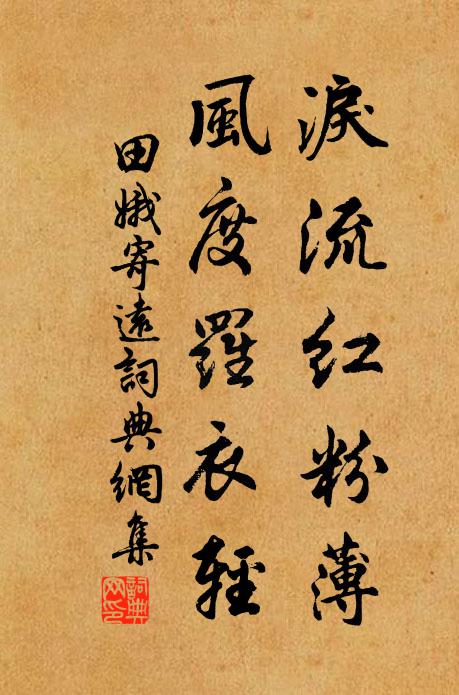 淚流紅粉薄
風度羅衣輕
田娥寄遠詞典網集
詞典網印